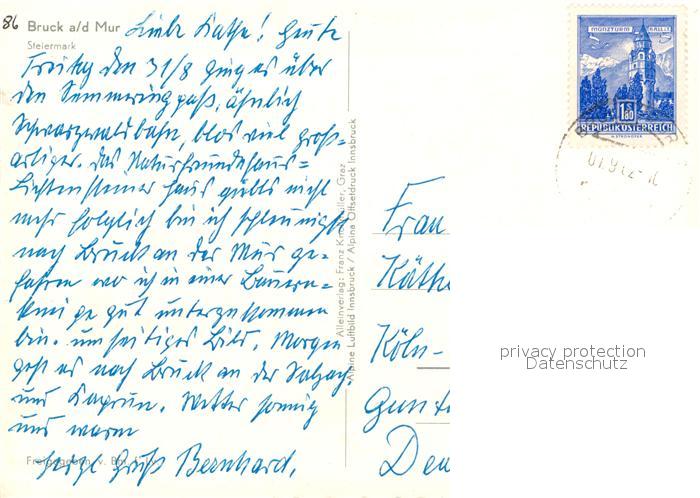 86
Bruck a/d Mur
Steiermark
Liebe Käthe! Heute
Freitag den 31/8 ging es über
den Semmeringpaß, ähnlich
Schwarzwaldbahn, blos viel groß=
artiger. Das Naturfreundehaus=
Lichtensteiner Haus gibts nicht
mehr folglich bin ich schleunigst
nach Bruck an der Mur ge=
fahren wo ich in einer Bauern=
kneipe gut untergekommen
bin. umseitiges Bild. Morgen
geht es nach Bruck an der Salzach
und Kaprun. Wetter sonnig
und warm
Herzl Gruß Bernhard.
Freigegeben v. 
Alleinverlag: Franz Graz
Alpine Luftbild Innsbruck / Alpina Offsetdruck Innsbruck
MÜNZTURM HALL i. T.
1.80
REPUBLIK ÖSTERREICH
Frau
Käthe
Köln-
Deu
privacy protection
Datenschutz